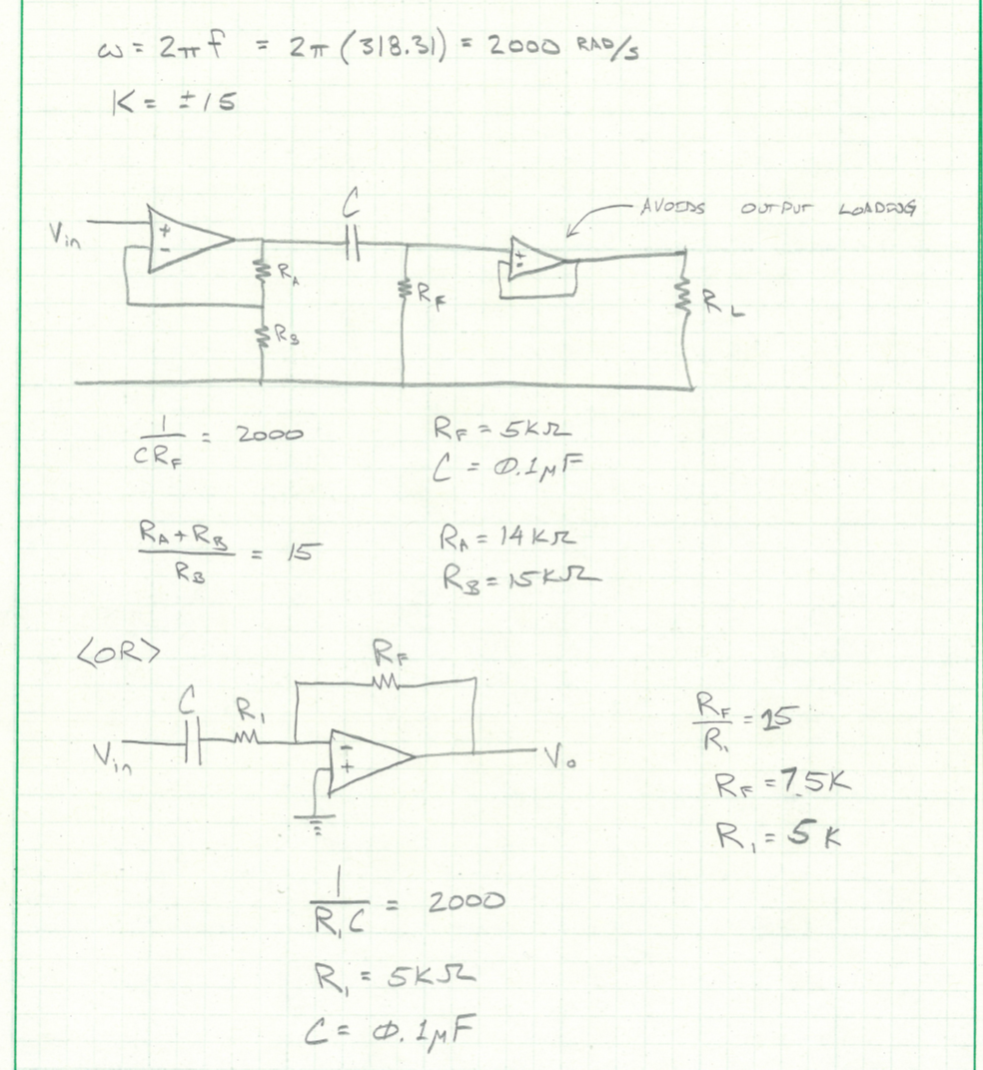 ω = 2πf = 2π(318.31) = 2000 RAD/s
K = ±15
C
AVOIDS OUTPUT LOADING
Vin
+
-
RA
RF
+
-
RL
RB
1/(CRF) = 2000
RF = 5KΩ
C = 0.1μF
(RA + RB)/RB = 15
RA = 14KΩ
RB = 15KΩ
<OR>
RF
C
R1
Vin
-
+
Vo
RF/R1 = 15
RF = 7.5K
R1 = 5K
1/(R1C) = 2000
R1 = 5KΩ
C = 0.1μF